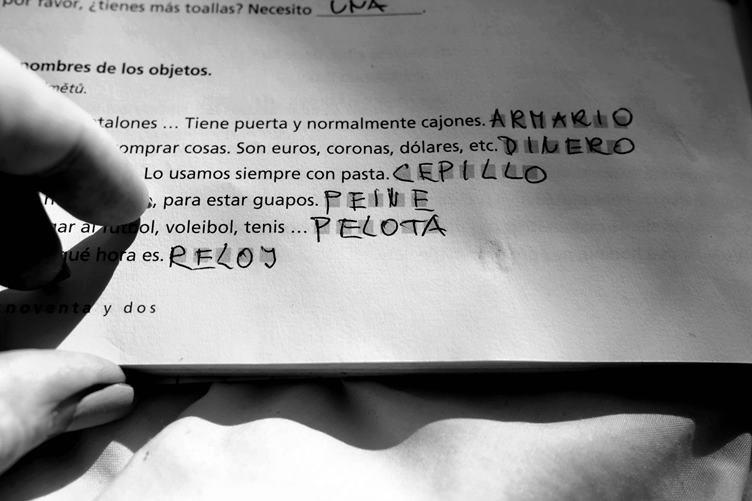 por favor, ¿tienes más toallas? Necesito UNA.
nombres de los objetos.
talones ... Tiene puerta y normalmente cajones. ARMARIO
omprar cosas. Son euros, coronas, dólares, etc. DINERO
Lo usamos siempre con pasta. CEPILLO
, para estar guapos. PEINE
ar al fútbol, voleibol, tenis ... PELOTA
qué hora es. RELOJ
noventa y dos